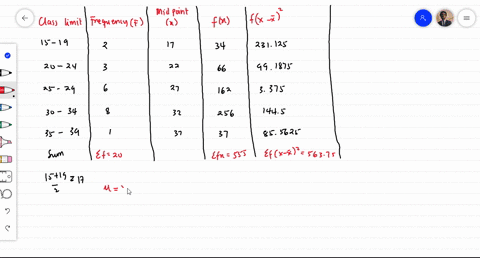 Class limit Frequency (F) Mid point (x) f(x) f(x-x̄)²
15-19 2 17 34 231.125
20-24 3 22 66 99.1875
25-29 6 27 162 3.375
30-34 8 32 256 144.5
35-39 1 37 37 85.5625
Sum Σf=20 Σfx=555 Σf(x-x̄)²=563.75
15+19/2 = 17 μ =